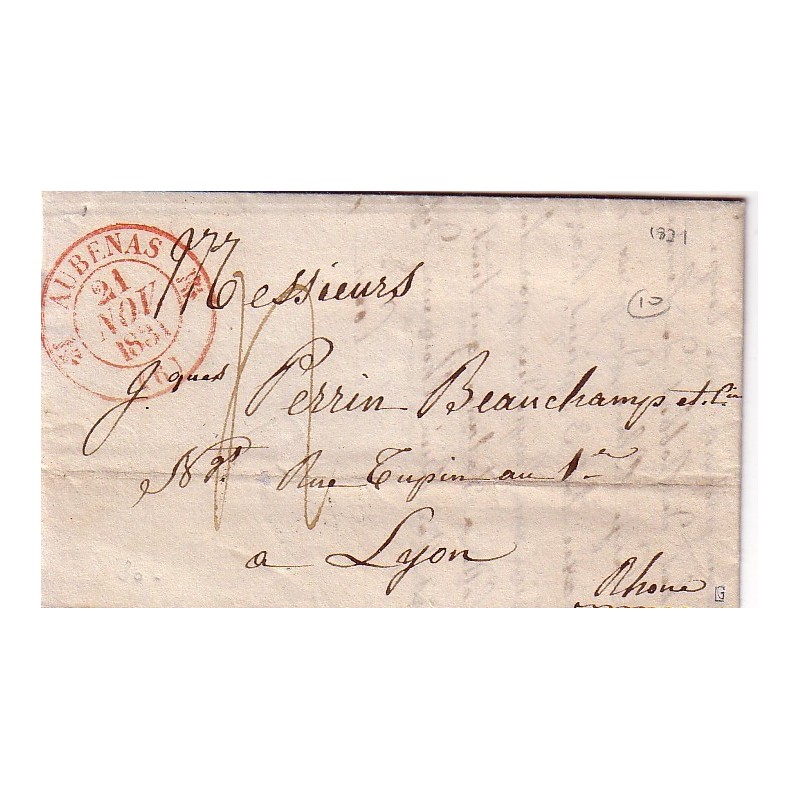 AUBENAS
21
NOV
1831
(6)
1831
10
Messieurs
J.ques Perrin Beauchamp et Cie
Nts. Rue Tupin au 1er
a Lyon
Rhone
G